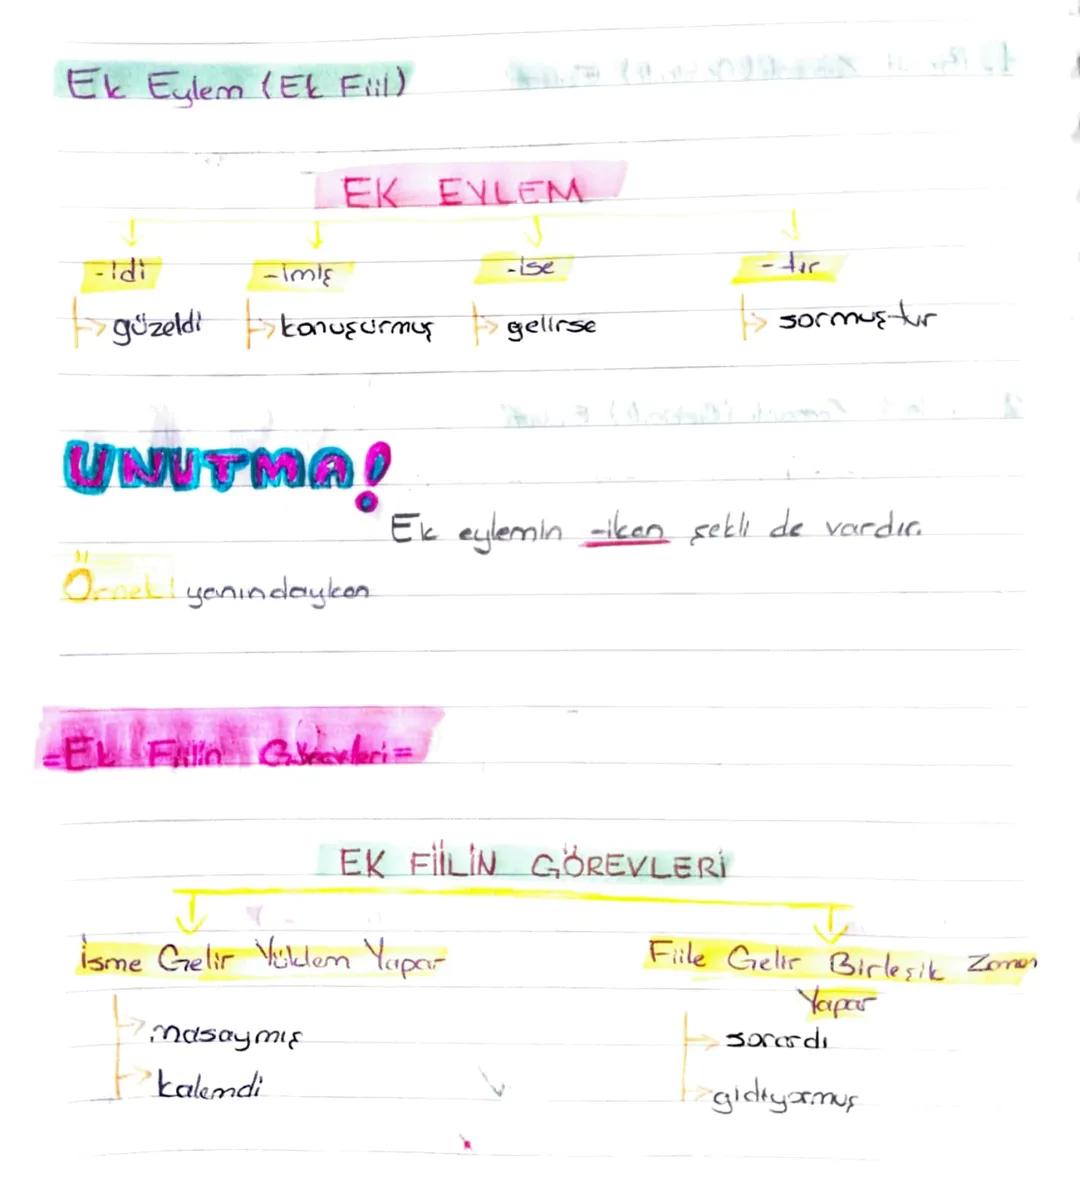 Ek Eylem (Ek Fiil)
EK EYLEM
-idi -imiş -ise -tır
güzeldi konuşurmuş gelirse sormuş-tur
UNUTMA!
Ek eylemin -iken şekli de vardır.
Örnek! yanındayken
=Ek Fiilin Görevleri=
EK FİİLİN GÖREVLERİ
İsme Gelir Yüklem Yapar Fiile Gelir Birleşik Zaman
Yapar
masaymış sorardı
kalemdi gidiyormuş